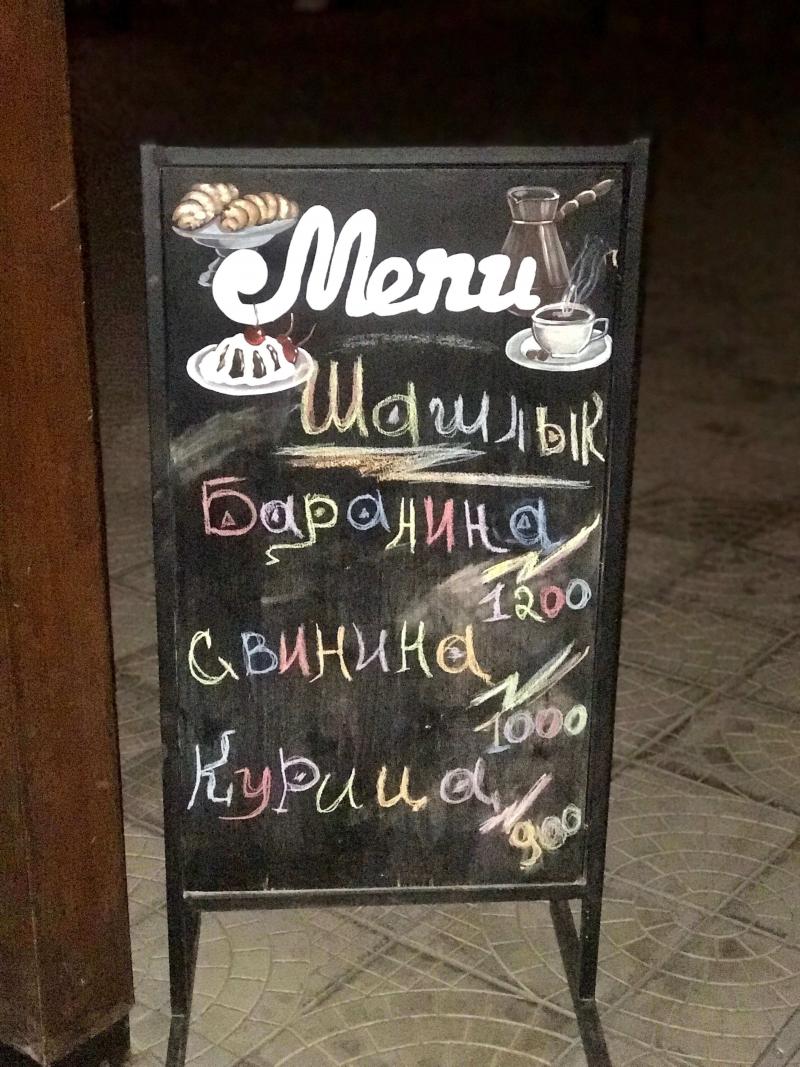 Menu
Шашлык
Баранина
1200
Свинина
1000
Курица
900